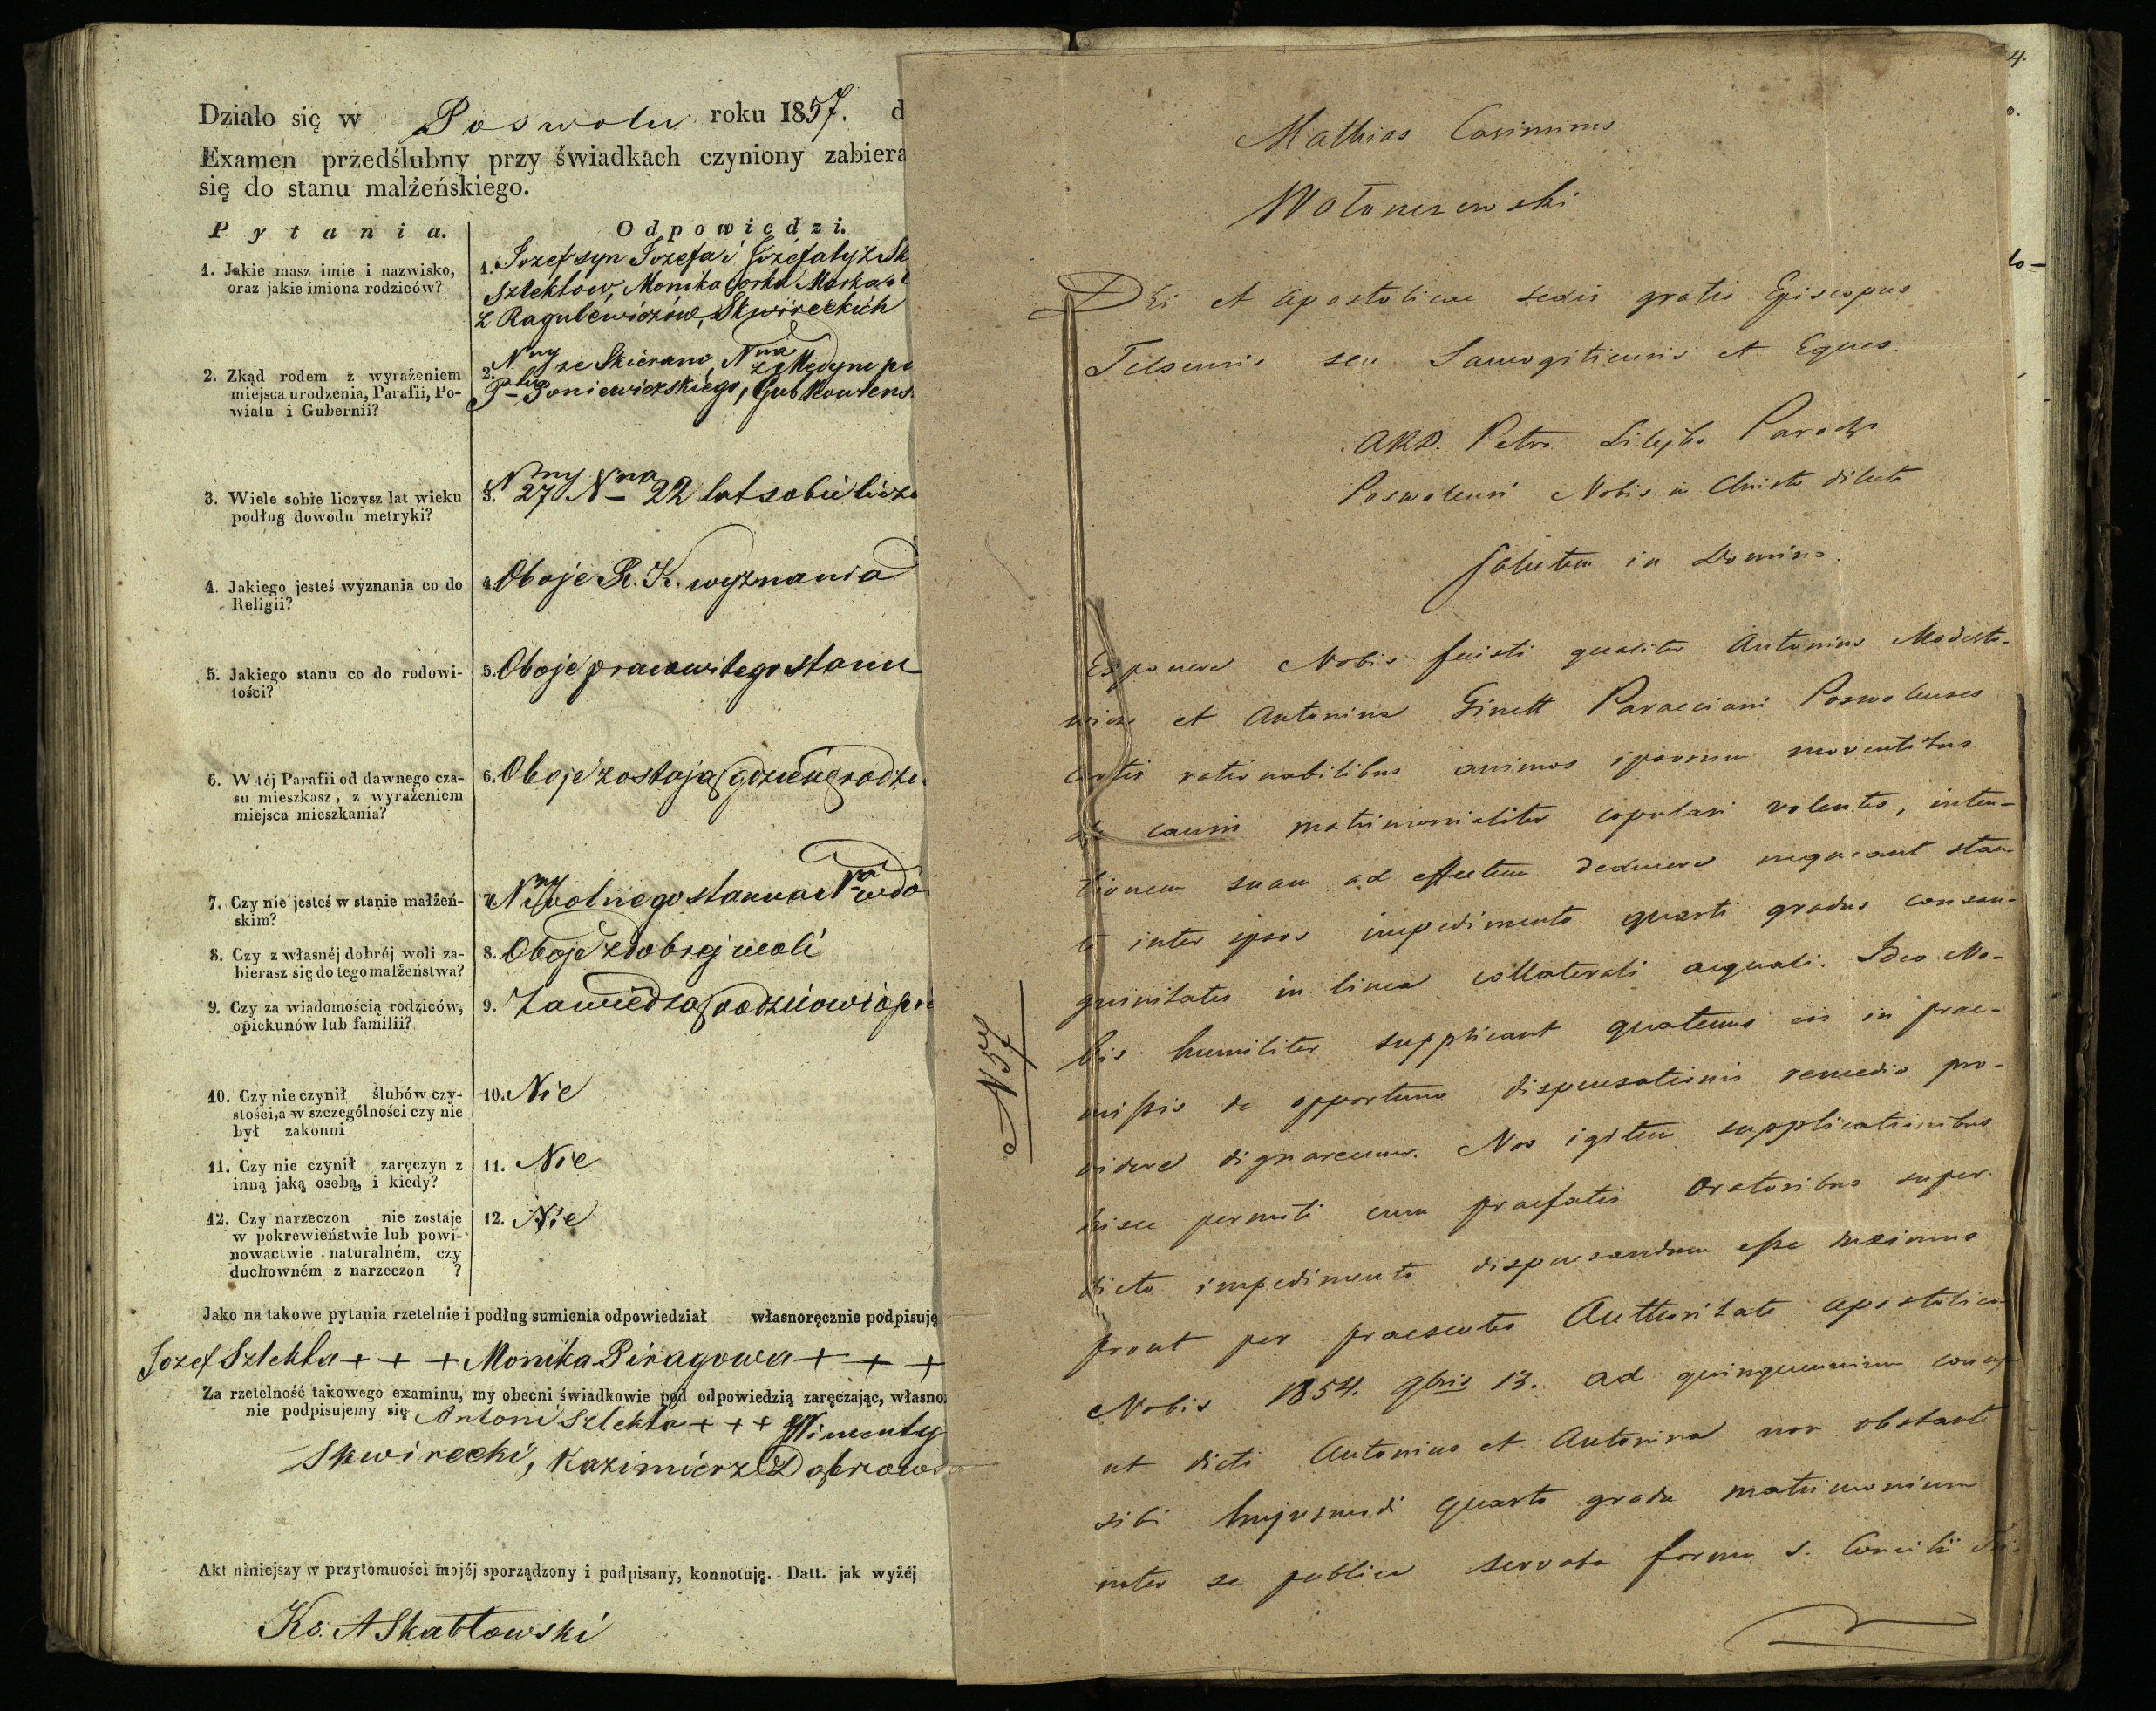 Działo się w Poswolu roku 1857. d
Examen przedślubny przy świadkach czyniony zabiera
się do stanu małżeńskiego.
Pytania. Odpowiedzi.
1. Jakie masz imie i nazwisko,
oraz jakie imiona rodziców?
1. Jozef syn Jozefa i Józefaty z Sk
Szlektow, Monika corka Marka i
z Ragulewiczów, Skwireckich
2. Zkąd rodem z wyrażeniem
miejsca urodzenia, Parafii, Po-
wiatu i Gubernii?
2. Nny ze Skieran, Nna z Mędyn p
Ptu Poniewiezskiego, Gub Kowens
3. Wiele sobie liczysz lat wieku
podług dowodu metryki?
3. Nny 27 Nna 22 lat sobie licz
4. Jakiego jesteś wyznania co do
Religii?
4. Oboje R. K. wyznania
5. Jakiego stanu co do rodowi-
tości?
5. Oboje prawowitego stanu
6. W téj Parafii od dawnego cza-
su mieszkasz, z wyrażeniem
miejsca mieszkania?
6. Oboje zostają gdzie urodze
7. Czy nie jesteś w stanie małżeń-
skim?
7. Nny wolnego stanu a Nna wdo
8. Czy z własnéj dobréj woli za-
bierasz się do tego małżeństwa?
8. Oboje z dobrej woli
9. Czy za wiadomością rodziców,
opiekunów lub familii?
9. Za wiedzą rodziców i
10. Czy nie czynił ślubów czy-
stości, a w szczególności czy nie
był zakonni
10. Nie
11. Czy nie czynił zaręczyn z
inną jaką osobą, i kiedy?
11. Nie
12. Czy narzeczon nie zostaje
w pokrewieństwie lub powi-
nowactwie naturalném, czy
duchowném z narzeczon ?
12. Nie
Jako na takowe pytania rzetelnie i podług sumienia odpowiedział własnoręcznie podpisuję
Jozef Szlekta + + + Monika Piragowa + + +
Za rzetelność takowego examinu, my obecni świadkowie pod odpowiedzią zaręczając, własno
nie podpisujemy się Antoni Szlekta + + + Wincenty
Skwirecki, Kazimierz Dąbrows
Akt niniejszy w przytomności mojéj sporządzony i podpisany, konnotuję. Datt. jak wyżéj
Ks. A Skabłowski
4.
Mathias Casimirus
Wołonczewski
Dei et Apostolicae sedis gratia Episcopus
Telsensis seu Samogitiensis et Eques.
ARD. Petro Lilejko Parocho
Poswolensi Nobis in Christo dilecto
Salutem in Domino.
Exponere Nobis fuisti qualiter Antonius Modesto-
wicz et Antonina Ginett Paraeciani Poswolenses
certis rationabilibus animos ipsorum moventibus
de causis matrimonialiter copulari volentes, inten-
tionem suam ad effectum deducere nequeant stan-
te inter ipsos impedimento quarti gradus consan-
guinitatis in linea collaterali aequali. Ideo No-
bis humiliter supplicant quatenus eis in prae-
missis de opportuno dispensationis remedio pro-
videre dignaremur. Nos igitur supplicationibus
hisce permoti cum praefatis Oratoribus super
dicto impedimento dispensandum esse duximus
prout per praesentes Authoritate apostolica
Nobis 1854. 9bris 13. ad quinquennium concess
ut dicti Antonius et Antonina non obstante
sibi hujusmodi quarto gradu matrimonium
inter se publice servata forma S. Concilii Tri
N 57